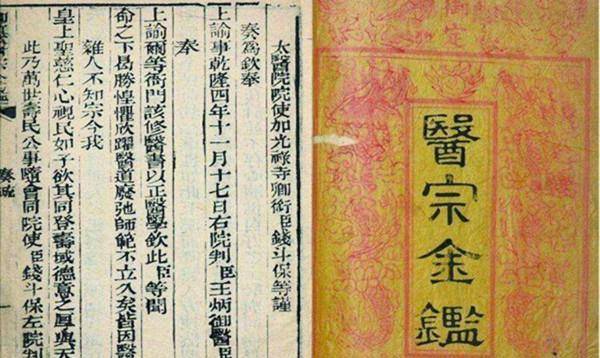 太醫院院使加光祿寺卿銜臣錢斗保等謹
奏爲欽奉
上諭事乾隆四年十一月十七日右院判臣王炳御醫臣
上諭爾等衙門該修醫書以正醫學欽此臣等聞
奉
命之下曷勝惶懼欣躍醫道廢弛師範不立久矣皆因醫
雜人不知宗今我
皇上聖慈仁心視民如子欲其同登壽域德意之厚與天
此乃萬世壽民公事隨會同院使臣錢斗保左院判
奏疏
醫宗金鑑